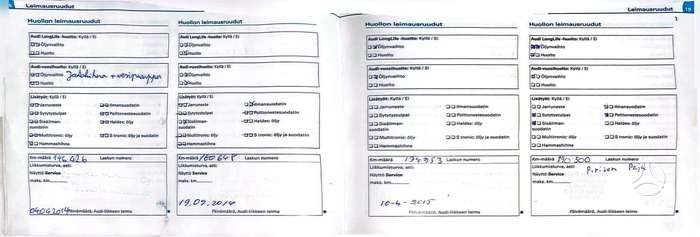 Leimausruudut
Huollon leimausruudut
Audi LongLife -huolto: Kyllä / Ei
Öljynvaihto
Huolto
Audi-vuosihuolto: Kyllä / Ei
Öljynvaihto Jakohihna + vesipumppu
Huolto
Lisätyöt: Kyllä / Ei
Jarruneste
Ilmansuodatin
Sytytystulpat
Polttoainesuodatin
Sisäilman-
suodatin
Haldex: öljy
Multitronic: öljy
S tronic: öljy ja suodatin
Hammashihna
Km-määrä 146 026 Laskun numero
Liikkumisturva, asti:
Näyttö Service
maks. km
04042014 Päivämäärä, Audi-liikkeen leima
Huollon leimausruudut
Audi LongLife -huolto: Kyllä / Ei
Öljynvaihto
Huolto
Audi-vuosihuolto: Kyllä / Ei
Öljynvaihto
Huolto
Lisätyöt: Kyllä / Ei
Jarruneste
Ilmansuodatin
Sytytystulpat
Polttoainesuodatin
Sisäilman-
suodatin
Haldex: öljy
Multitronic: öljy
S tronic: öljy ja suodatin
Hammashihna
Km-määrä 160 648 Laskun numero
Liikkumisturva, asti:
Näyttö Service
maks. km
19.09.2014
Päivämäärä, Audi-liikkeen leima
Leimausruudut 19
Huollon leimausruudut
Audi LongLife -huolto: Kyllä / Ei
Öljynvaihto
Huolto
Audi-vuosihuolto: Kyllä / Ei
Öljynvaihto
Huolto
Lisätyöt: Kyllä / Ei
Jarruneste
Ilmansuodatin
Sytytystulpat
Polttoainesuodatin
Sisäilman-
suodatin
Haldex: öljy
Multitronic: öljy
S tronic: öljy ja suodatin
Hammashihna
Km-määrä 174 353 Laskun numero
Liikkumisturva, asti:
Näyttö Service
maks. km
10-4-2015
Päivämäärä, Audi-liikkeen leima
Huollon leimausruudut
Audi LongLife -huolto: Kyllä / Ei
Öljynvaihto
Huolto
Audi-vuosihuolto: Kyllä / Ei
Öljynvaihto
Huolto
Lisätyöt: Kyllä / Ei
Jarruneste
Ilmansuodatin
Sytytystulpat
Polttoainesuodatin
Sisäilman-
suodatin
Haldex: öljy
Multitronic: öljy
S tronic: öljy ja suodatin
Hammashihna
Km-määrä 190 500 Laskun numero
Liikkumisturva, asti:
Näyttö Service
maks. km
Päivämäärä, Audi-liikkeen leima